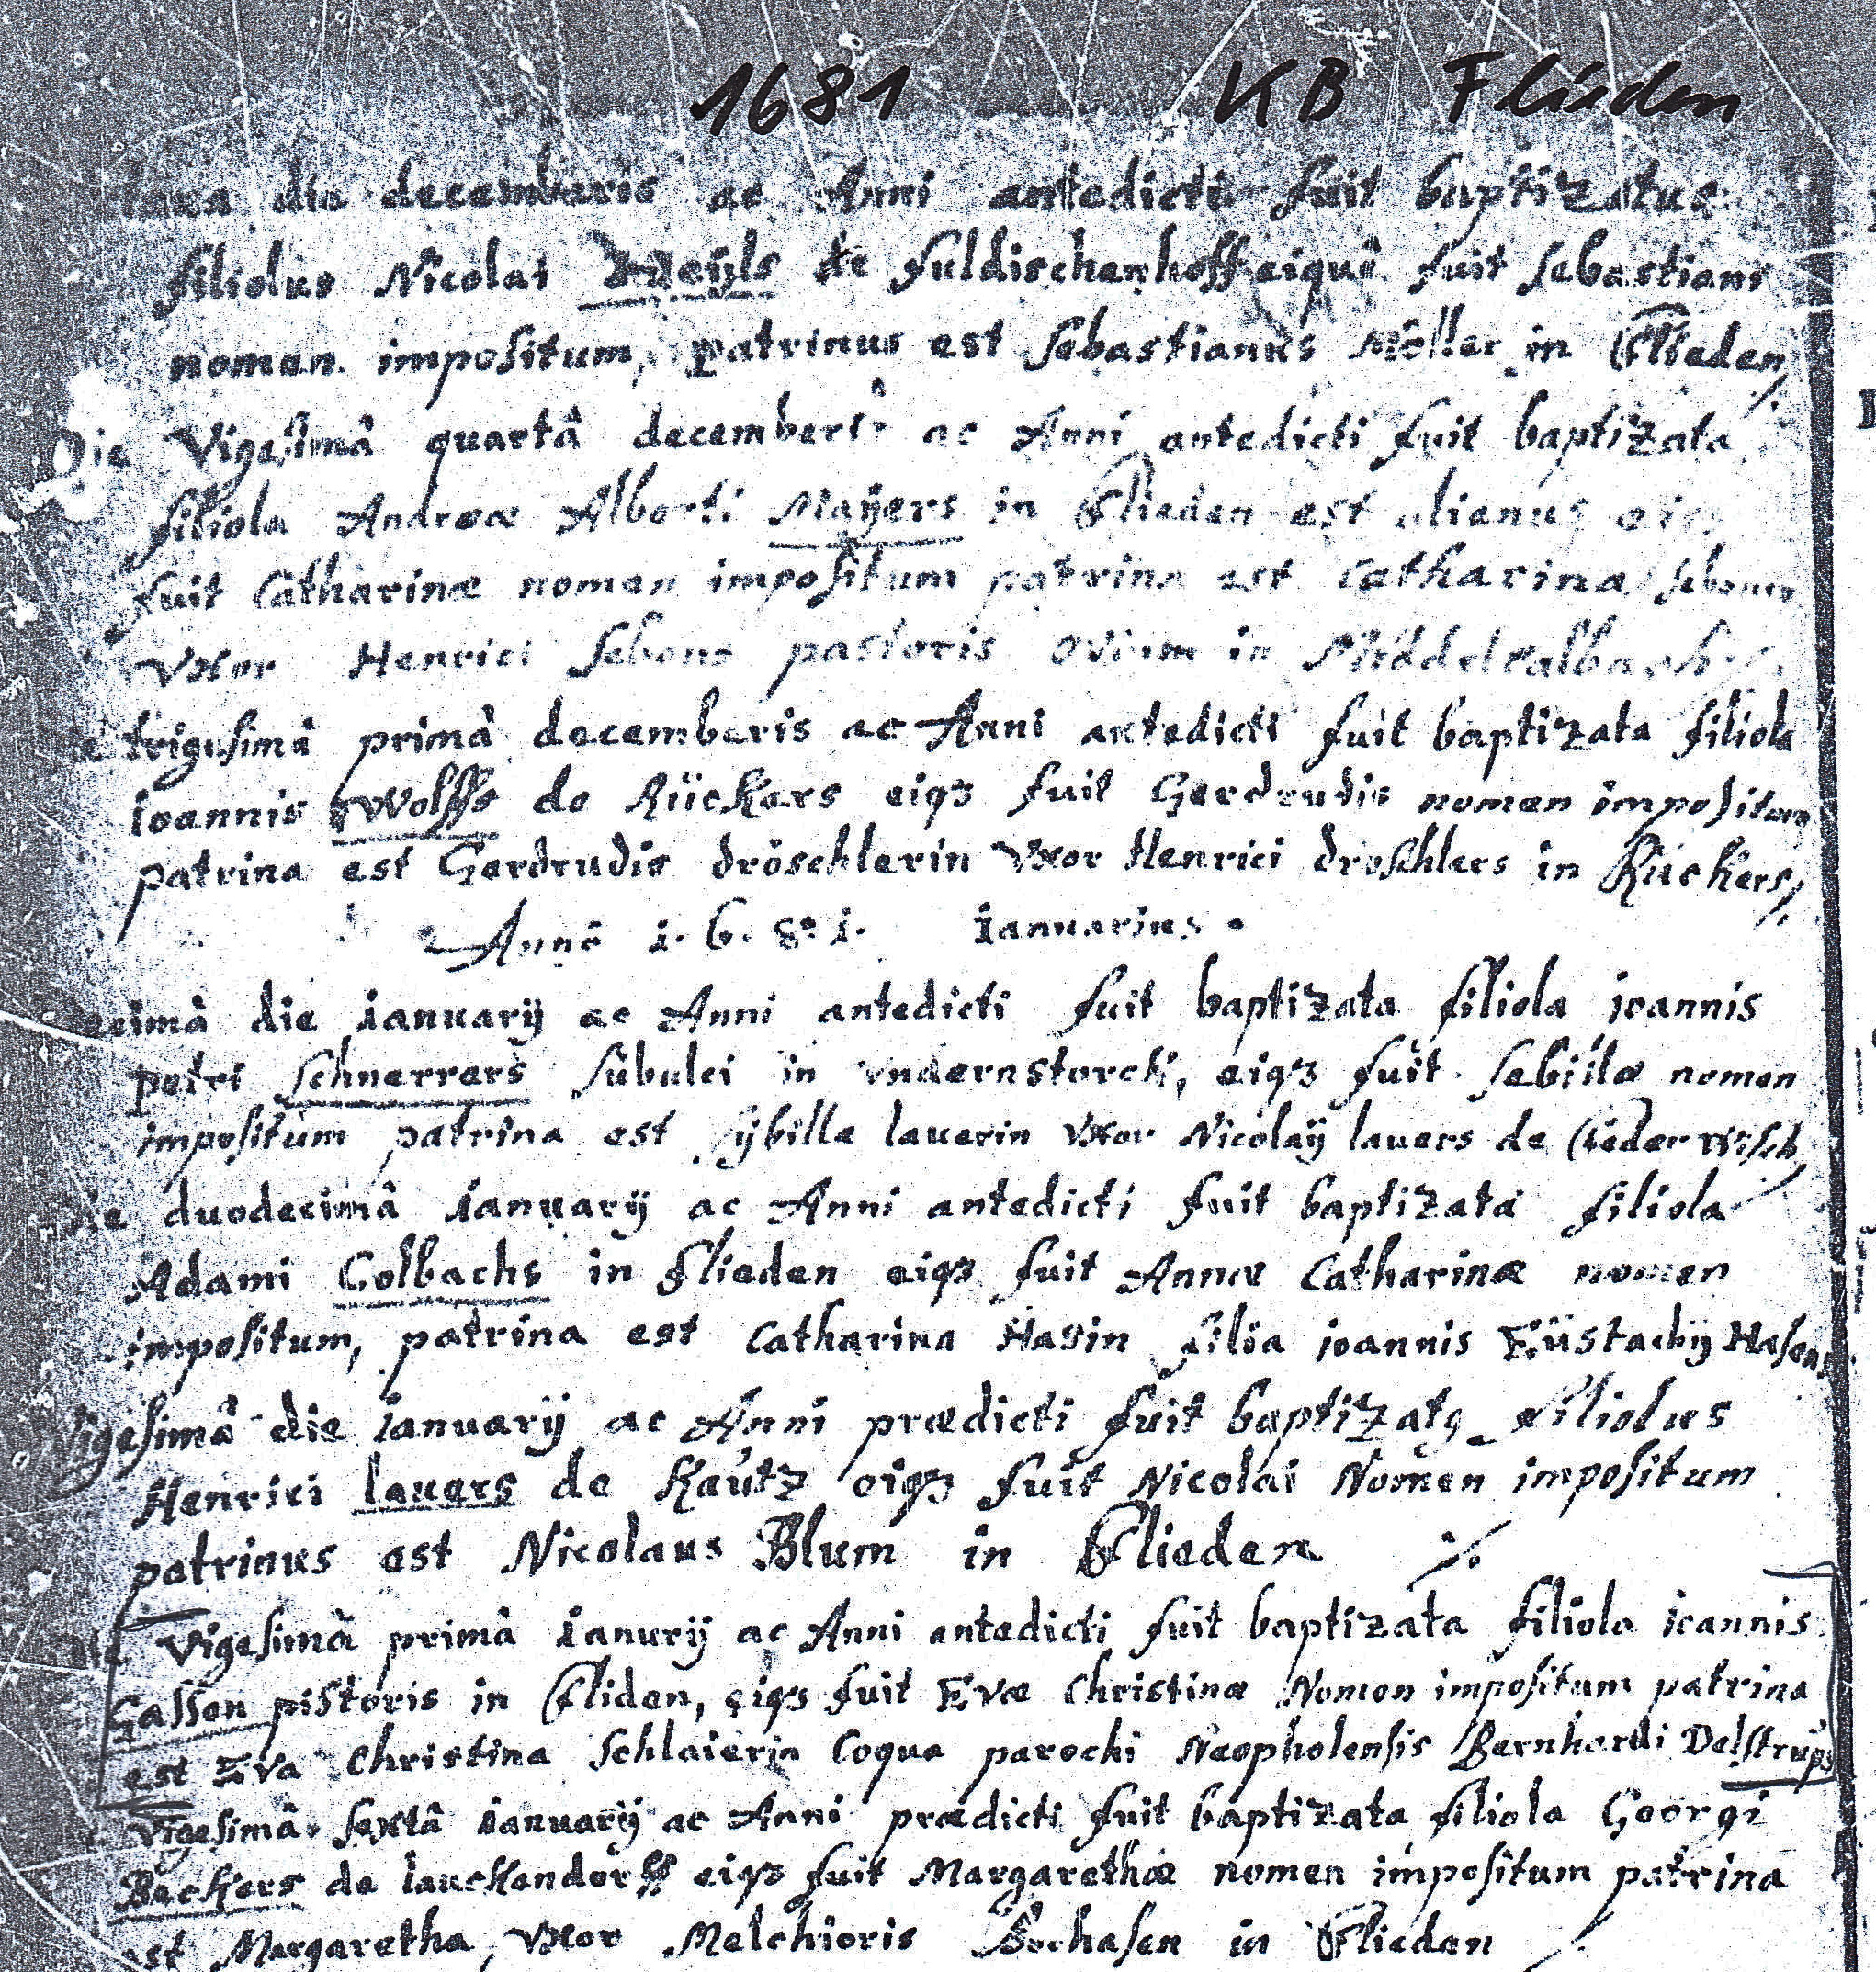 1681 KB Flieden
die decemberis ac Anni antedicti fuit baptizatus
filiolus Nicolai de fuldischenhoff eique fuit Sebastiani
nomen impositum, patrinus est Sebastianus Möller in Flieden
Die Vigesimâ quartâ decemberis ac Anni antedicti fuit baptizata
filiola Andreæ Alberti Mayers in Flieden est alienus
fuit Catharinæ nomen impositum patrina est Catharina
Vxor Henrici Sebons pastoris ovium in Middelkalbach
trigesimâ primâ decemberis ac Anni antedicti fuit baptizata filiola
ioannis Wolffs de Rückers eiqz fuit Gerdrudis nomen impositum
patrina est Gerdrudis dröschlerin Vxor Henrici droschlers in Rückers
Anno 1.6.8.1. Ianuarius.
die Ianuarij ac Anni antedicti fuit baptizata filiola ioannis
petri Schnerrers subulci in vndernstorck, eiqz fuit Sebillæ nomen
impositum patrina est Sybilla lauerin Vxor Nicolaij lauers de
duodecimâ Ianuarij ac Anni antedicti fuit baptizata filiola
Adami Golbachs in Flieden eiqz fuit Annæ Catharinæ nomen
impositum, patrina est Catharina Hasin filia ioannis Eüstachij Hasens
Vigesimâ die Ianuarij ac Anni prædicti fuit baptizatq filiolus
Henrici lauers de Kautz eiqz fuit Nicolai Nomen impositum
patrinus est Nicolaus Blum in Flieden ./.
Vigesimâ primâ Ianurij ac Anni antedicti fuit baptizata filiola ioannis
Gassen pistoris in Fliden, eiqz fuit Evæ Christinæ Nomen impositum patrina
est Eva Christina Schlaierin Coqua parochi Neopholensis Bernhardi Delstrups
Vigesimâ sextâ Ianuarij ac Anni prædicti fuit baptizata filiola Georgi
Beckers de lauckendorff eiqz fuit Margarethæ nomen impositum patrina
est Margaretha, Vxor Melchioris Bochasen in Flieden